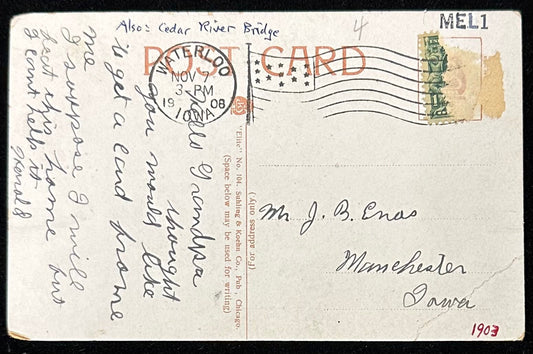 Also: Cedar River Bridge
4
MEL1
POST CARD
WATERLOO
NOV 7
3-PM
1908
IOWA
Hello Grandpa
thought
you would like
to get a card from
me
I suppose I will
beat this home but
I cant help it
Harold
"Elite" No. 104, Suhling & Koehn Co., Pub., Chicago.
(Space below may be used for writing)
(For address only)
Mr J. B. Enos
Manchester
Iowa
1903